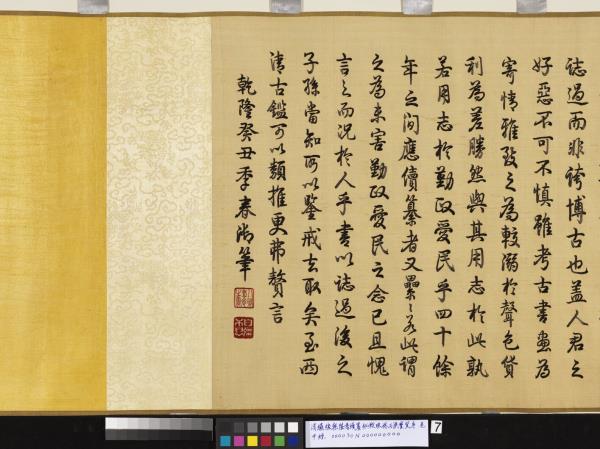 誌過而非誇博古也蓋人君之
好惡不可不慎雖考古書畫為
寄情雅致之為較溺於聲色貨
利為差勝然與其用志於此孰
若用志於勤政愛民乎四十餘
年之間應續纂者又纍纍若此謂
之為未害勤政愛民之念已且愧
言之而況於人乎書以誌過後之
子孫當知所以鑒戒去取矣至西
清古鑑可以類推更弗贅言
乾隆癸丑季春御筆
7